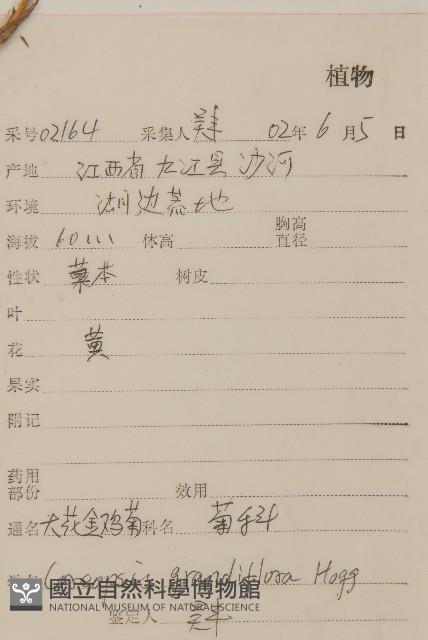 植物
采号02164 采集人 02年6月5日
产地 江西省九江县沙河
环境 湖边荒地
海拔 60m 体高 胸高直径
性状 草本 树皮
叶
花 黄
果实
附记
药用部份 效用
通名 大花金鸡菊 科名 菊科
Coreopsis grandiflora Hogg
國立自然科學博物館
NATIONAL MUSEUM OF NATURAL SCIENCE
鉴定人